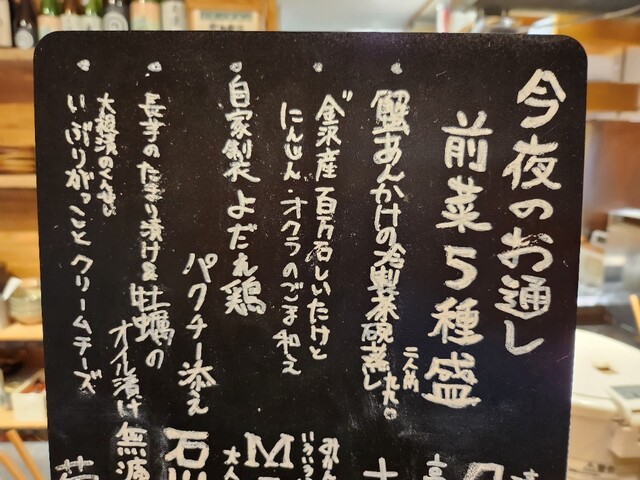 今夜のお通し
前菜5種盛
・蟹あんかけの冷製茶碗蒸し
・金沢産"百万石しいたけと
にんじん・オクラのごま和え
・自家製よだれ鶏
パクチー添え
・長芋のたまり漬け&牡蠣の
オイル漬け
大根漬のくんせい
・いぶりがっことクリームチーズ
石川
無濾